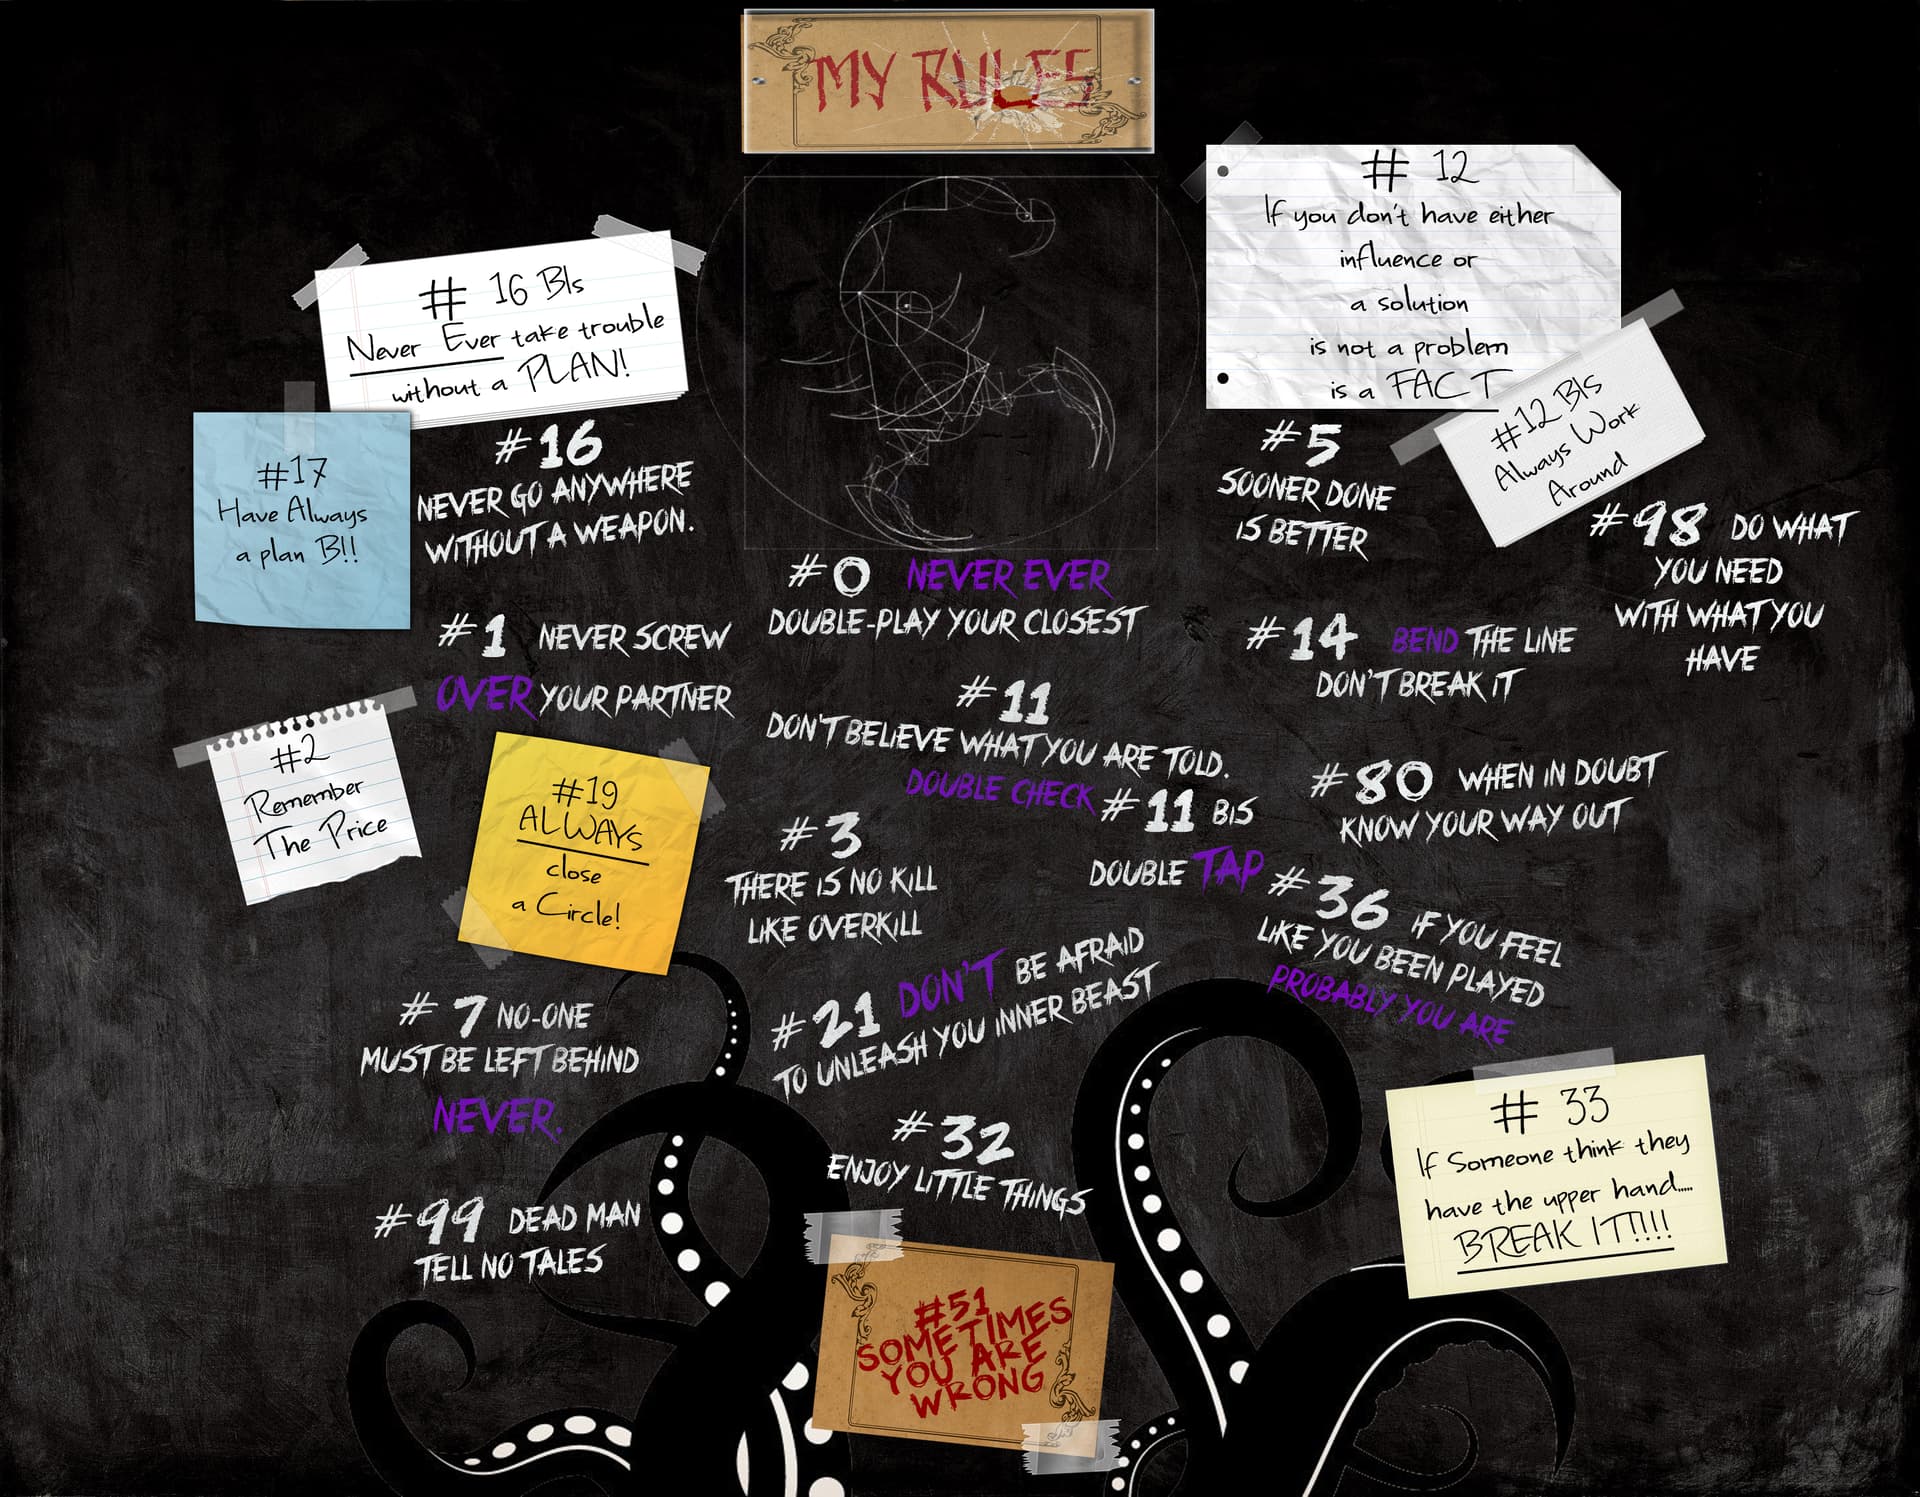 MY RULES
# 16 BIs
Never Ever take trouble
without a PLAN!
# 12
If you don't have either
influence or
a solution
is not a problem
is a FACT
#12 BIs
Always Work
Around
#17
Have Always
a plan B!!
#16
NEVER GO ANYWHERE
WITHOUT A WEAPON.
#5
SOONER DONE
IS BETTER
#98 DO WHAT
YOU NEED
WITH WHAT YOU
HAVE
#0 NEVER EVER
DOUBLE-PLAY YOUR CLOSEST
#1 NEVER SCREW
OVER YOUR PARTNER
#14 BEND THE LINE
DON'T BREAK IT
#11
DON'T BELIEVE WHAT YOU ARE TOLD.
DOUBLE CHECK
#11 BIS
DOUBLE TAP
#80 WHEN IN DOUBT
KNOW YOUR WAY OUT
#2
Remember
The Price
#19
ALWAYS
close
a Circle!
#3
THERE IS NO KILL
LIKE OVERKILL
#36 IF YOU FEEL
LIKE YOU BEEN PLAYED
PROBABLY YOU ARE
#21 DON'T BE AFRAID
TO UNLEASH YOU INNER BEAST
#7 NO-ONE
MUST BE LEFT BEHIND
NEVER.
#32
ENJOY LITTLE THINGS
# 33
If Someone think they
have the upper hand.....
BREAK IT!!!!
#99 DEAD MAN
TELL NO TALES
#51
SOMETIMES
YOU ARE
WRONG